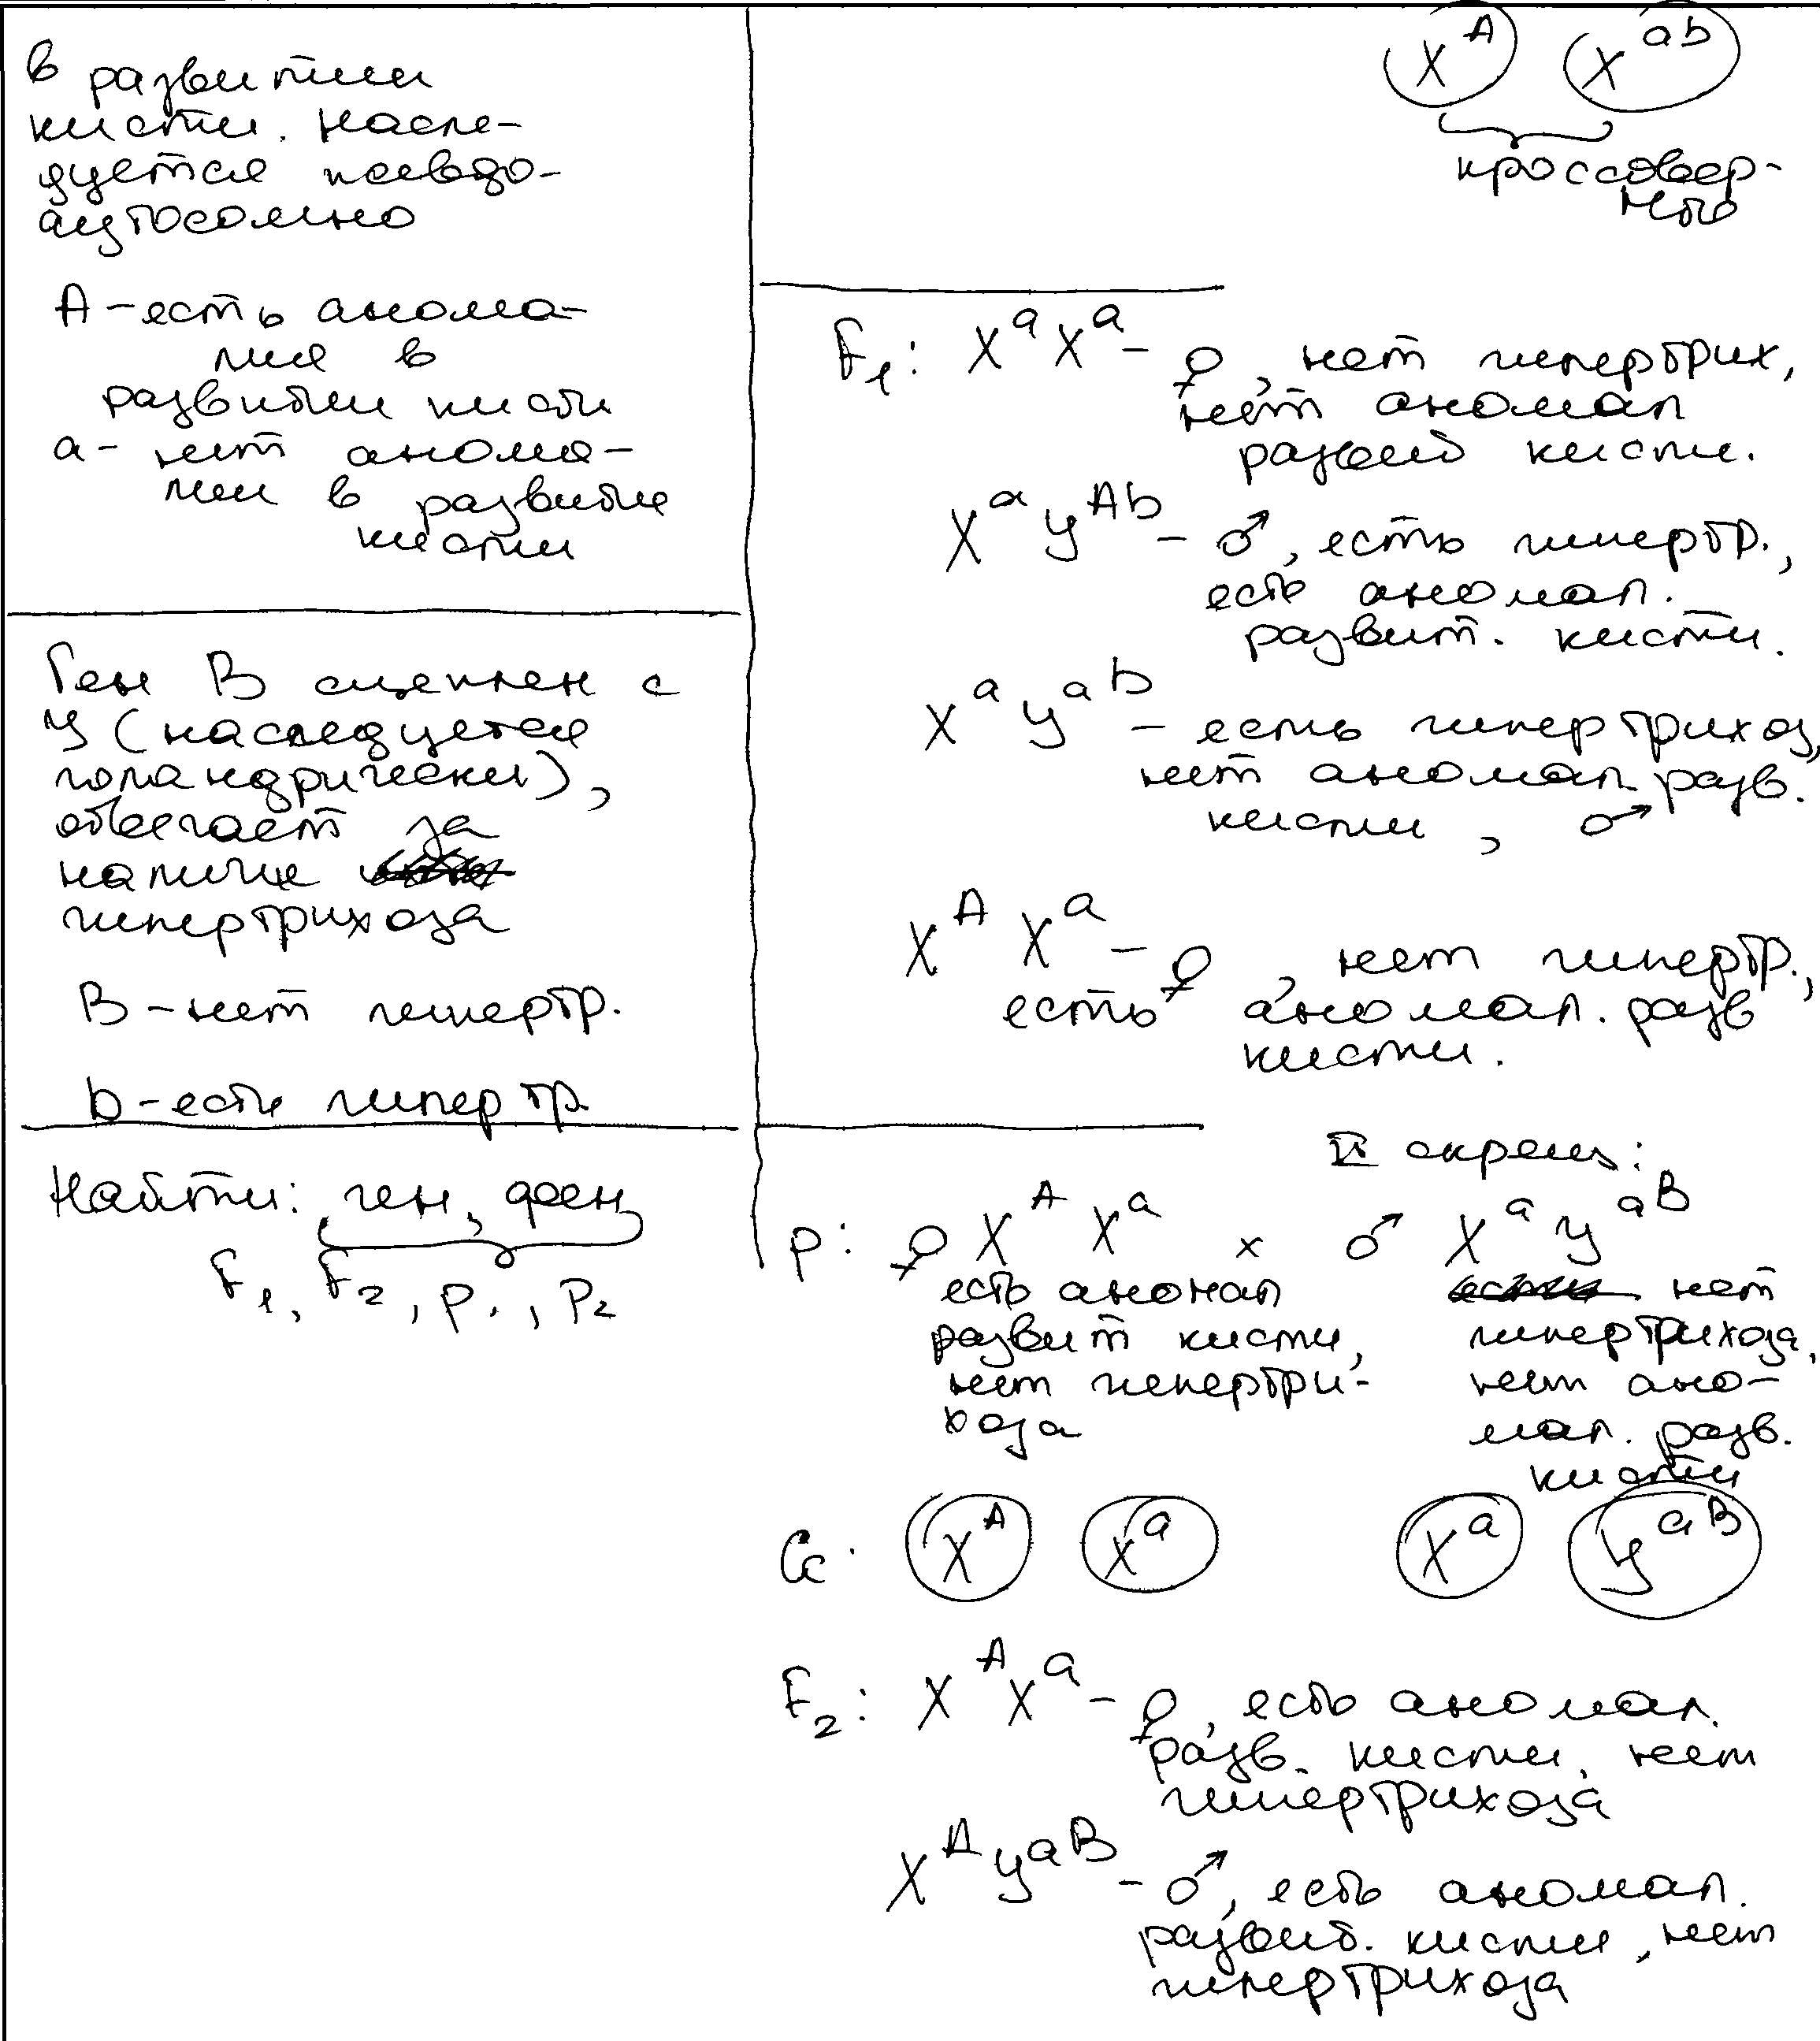 в развитии
кисти. Насле-
дуется псевдо-
аутосомно
А - есть анома-
лия в
развитии кисти
а - нет анома-
лии в развитие
кисти
Ген В сцеплен с
У (наследуется
голандрически),
отвечает за
наличие
гипертрихоза
В - нет гипертр.
b - есть гипертр.
Найти: ген, фен
F1, F2, P1, P2
X^A X^ab
кроссовер-
ные
F1: X^a X^a - ♀, нет гипертрих,
нет аномал
развит кисти.
X^a y^Ab - ♂, есть гипертр.,
есть аномал.
развит. кисти.
X^a y^ab - есть гипертрихоз,
нет аномал. разв.
кисти, ♂
X^A X^a - ♀, нет гипертр.,
есть аномал. разв
кисти.
II скрещ:
P: ♀ X^A X^a × ♂ X^a y^aB
есть аномал нет
развит кисти, гипертрихоза,
нет гипертри- нет ано-
хоза мал. разв.
кисти
G: X^A X^a X^a y^aB
F2: X^A X^a - ♀, есть аномал.
разв. кисти, нет
гипертрихоза
X^A y^aB - ♂, есть аномал.
развит. кисти, нет
гипертрихоза